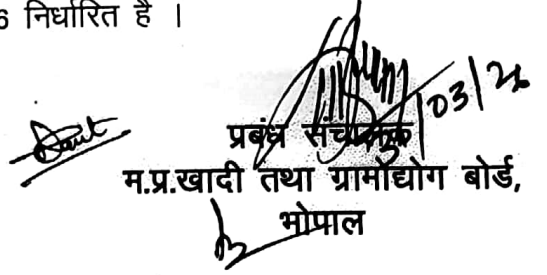 6 निर्धारित है ।
03/26
प्रबंध संचालक
म.प्र.खादी तथा ग्रामोद्योग बोर्ड,
भोपाल